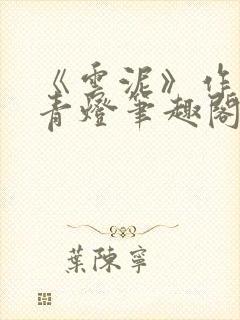 《雲泥》作
青燈筆趣閣
葉陳寧